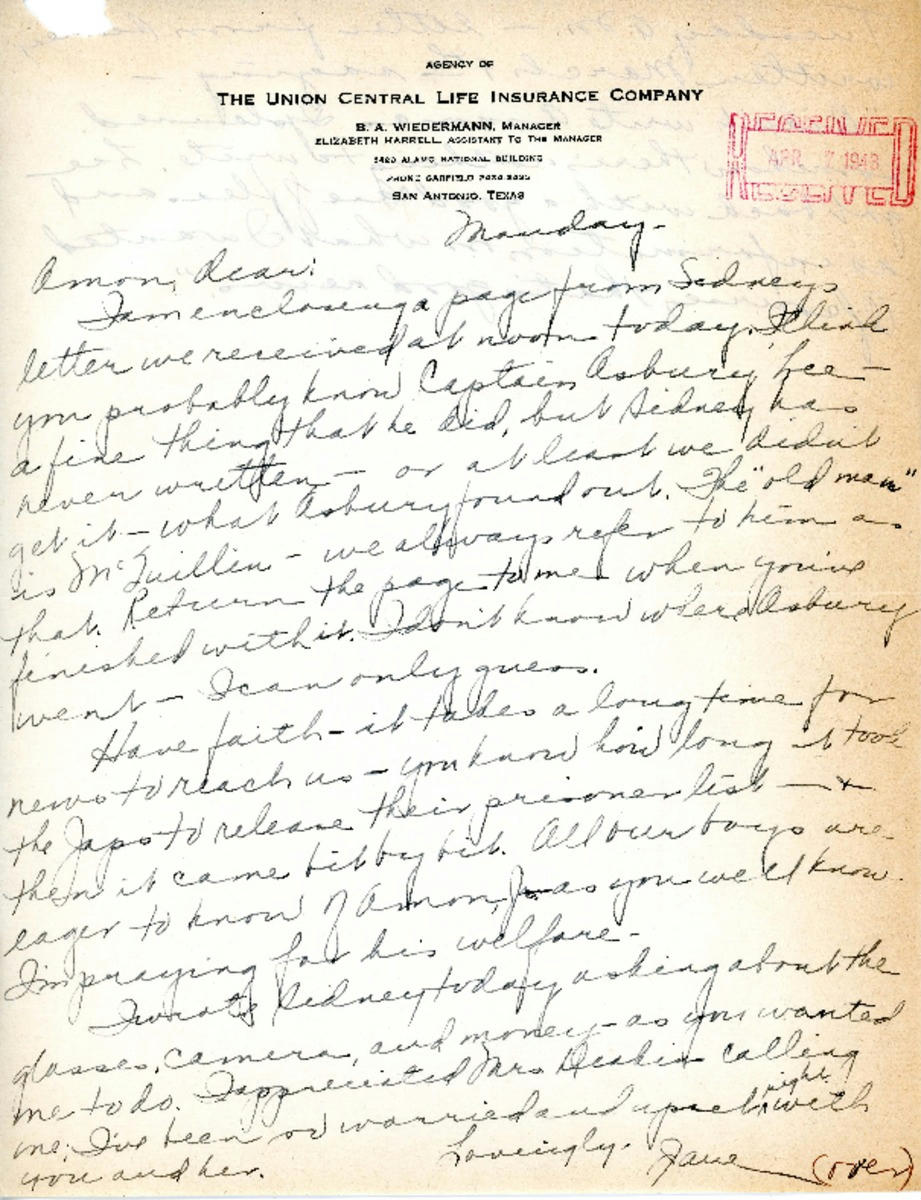 AGENCY OF
THE UNION CENTRAL LIFE INSURANCE COMPANY
B. A. WIEDERMANN, MANAGER
ELIZABETH HARRELL, ASSISTANT TO THE MANAGER
ALAMO NATIONAL BUILDING
PHONE GARFIELD
SAN ANTONIO, TEXAS
RECEIVED
APR 7 1943
Monday-
Amon, dear:
I am enclosing a page from Sidney's
letter we received at noon today. I think
you probably know Captain Asbury Lee -
a fine thing that he did, but Sidney has
never written - or at least we didn't
get it - what Asbury found out. The "old man"
is McQuillin - we always refer to him as
that. Return the page to me when you've
finished with it. I don't know where Asbury
went - I can only guess.
Have faith - it takes a long time for
news to reach us - you know how long it took
the Japs to release their prisoner list - +
then it came bit by bit. All our boys are
eager to know of Amon, Jr. as you well know.
I'm praying for his welfare -
I wrote Sidney today asking about the
glasses, camera, and money - as you wanted
me to do. I appreciated Mrs. calling
me. I've been so worried and upset, right with
you and her.
Lovingly. Jane (over)